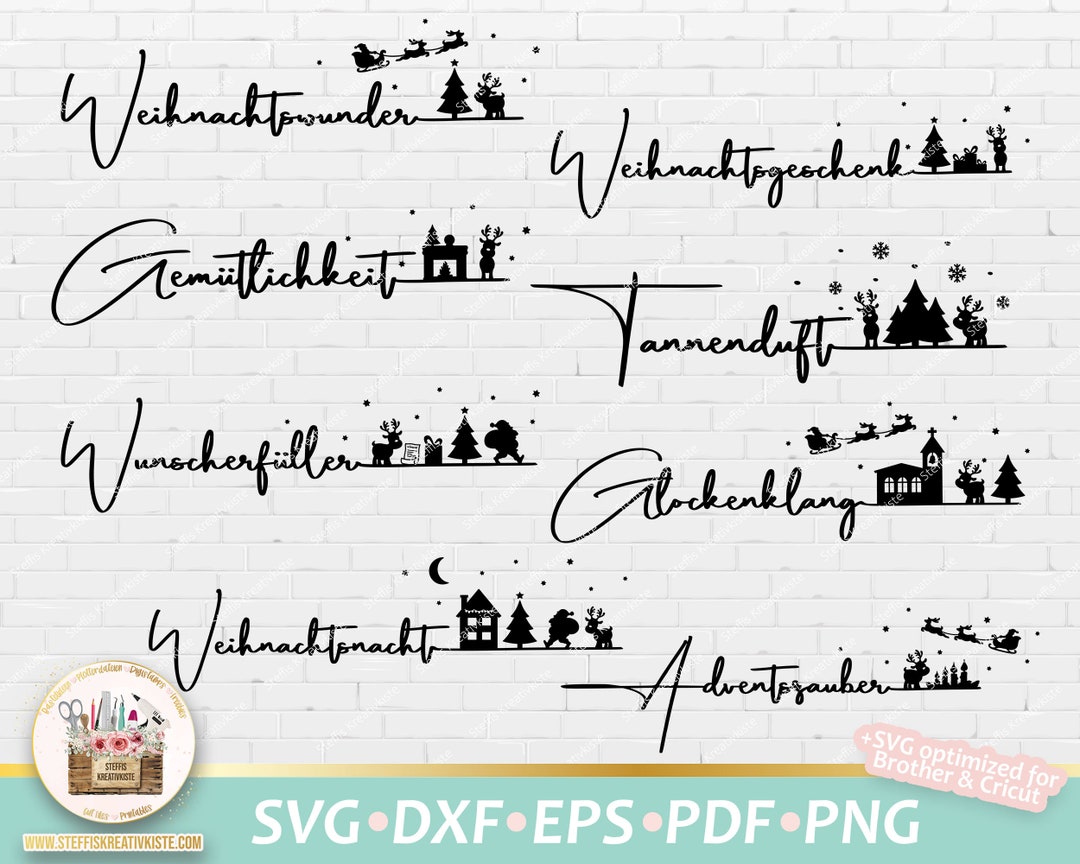 Weihnachtswunder
Weihnachtsgeschenk
Gemütlichkeit
Tannenduft
Wunscherfüller
Glockenklang
Weihnachtsnacht
Adventszauber
+SVG optimized for
Brother & Cricut
Plotterdateien
Digistamps
STEFFIS
KREATIVKISTE
Printables
WWW.STEFFISKREATIVKISTE.COM
SVG•DXF•EPS•PDF•PNG